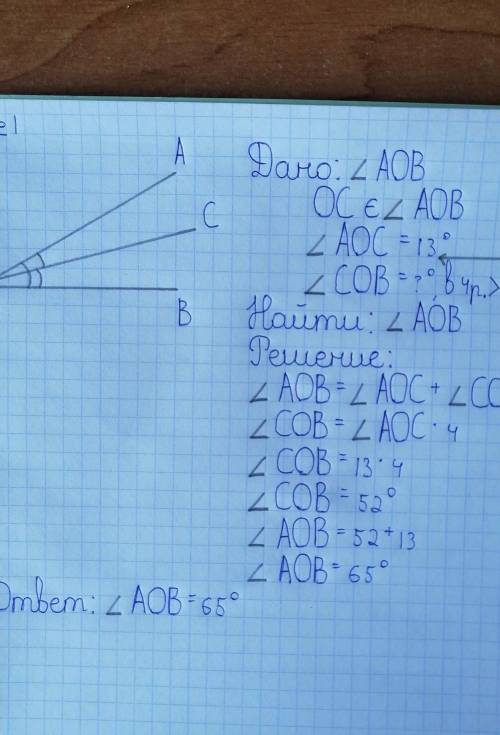 A
C
B
Дано: ∠ AOB
OC є ∠ AOB
∠ AOC = 13°
∠ COB = ?° В 4р.>
Найти: ∠ AOB
Решение:
∠ AOB = ∠ AOC + ∠ CO
∠ COB = ∠ AOC · 4
∠ COB = 13 · 4
∠ COB = 52°
∠ AOB = 52 + 13
∠ AOB = 65°
Ответ: ∠ AOB = 65°